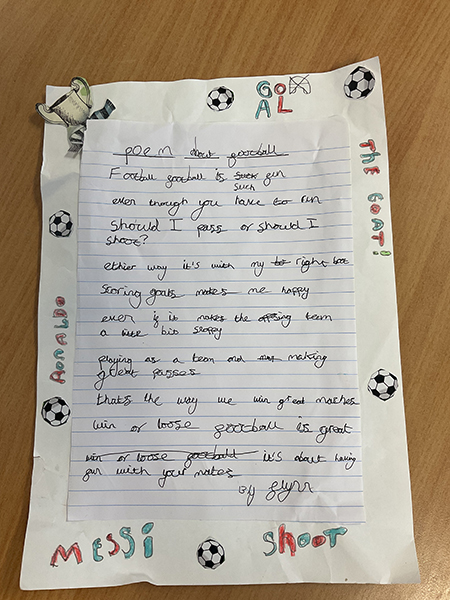 GOAL
THE GOAT!
RONALDO
poem about football
Football football is such fun
even through you have to run
Should I pass or should I
shoot?
ethier way it's with my right boot
Scoring goals makes me happy
even if it makes the opposing team
a little bit snappy
playing as a team and making
great passes
thats the way we win great matches
win or loose football is great
win or loose football it's about having
fun with your mates
By Flynn
MESSi
ShOOT